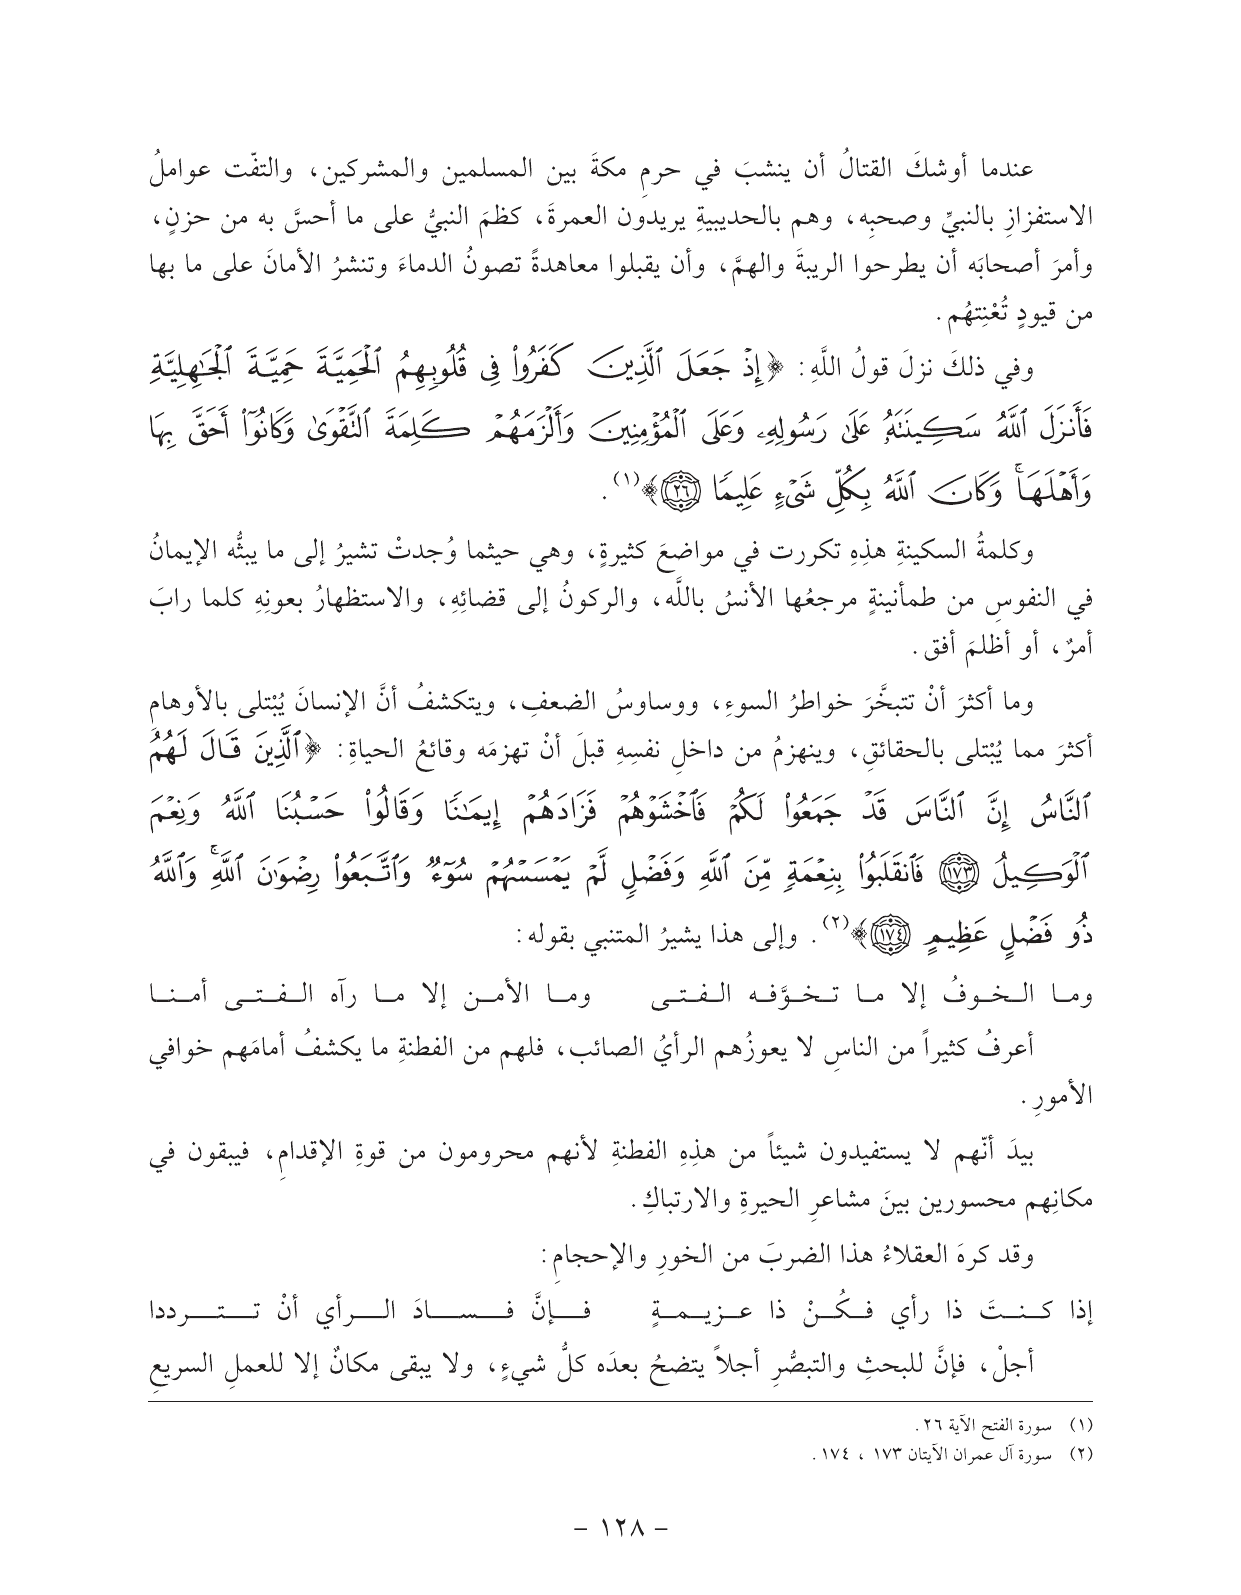 عندما أوشكَ القتالُ أن ينشبَ في حرمِ مكةَ بين المسلمين والمشركين، والتفّت عواملُ
الاستفزازِ بالنبيِّ وصحبِه، وهم بالحديبيةِ يريدون العمرةَ، كظمَ النبيُّ على ما أحسَّ به من حزنٍ،
وأمرَ أصحابَه أن يطرحوا الريبةَ والهمَّ، وأن يقبلوا معاهدةً تصونُ الدماءَ وتنشرُ الأمانَ على ما بها
من قيودٍ تُعْنِتهُم.
وفي ذلكَ نزلَ قولُ اللَّهِ: ﴿إِذْ جَعَلَ ٱلَّذِينَ كَفَرُوا۟ فِى قُلُوبِهِمُ ٱلْحَمِيَّةَ حَمِيَّةَ ٱلْجَٰهِلِيَّةِ
فَأَنزَلَ ٱللَّهُ سَكِينَتَهُۥ عَلَىٰ رَسُولِهِۦ وَعَلَى ٱلْمُؤْمِنِينَ وَأَلْزَمَهُمْ كَلِمَةَ ٱلتَّقْوَىٰ وَكَانُوٓا۟ أَحَقَّ بِهَا
وَأَهْلَهَا ۚ وَكَانَ ٱللَّهُ بِكُلِّ شَىْءٍ عَلِيمًا ٢٦﴾(١).
وكلمةُ السكينةِ هذِهِ تكررت في مواضعَ كثيرةٍ، وهي حيثما وُجدتْ تشيرُ إلى ما يبثُّه الإيمانُ
في النفوسِ من طمأنينةٍ مرجعُها الأنسُ باللَّه، والركونُ إلى قضائِهِ، والاستظهارُ بعونِهِ كلما رابَ
أمرٌ، أو أظلمَ أفق.
وما أكثرَ أنْ تتبخَّرَ خواطرُ السوءِ، ووساوسُ الضعفِ، ويتكشفُ أنَّ الإنسانَ يُبْتلى بالأوهامِ
أكثرَ مما يُبْتلى بالحقائقِ، وينهزمُ من داخلِ نفسِهِ قبلَ أنْ تهزمَه وقائعُ الحياةِ: ﴿ٱلَّذِينَ قَالَ لَهُمُ
ٱلنَّاسُ إِنَّ ٱلنَّاسَ قَدْ جَمَعُوا۟ لَكُمْ فَٱخْشَوْهُمْ فَزَادَهُمْ إِيمَٰنًا وَقَالُوا۟ حَسْبُنَا ٱللَّهُ وَنِعْمَ
ٱلْوَكِيلُ ١٧٣ فَٱنقَلَبُوا۟ بِنِعْمَةٍ مِّنَ ٱللَّهِ وَفَضْلٍ لَّمْ يَمْسَسْهُمْ سُوٓءٌ وَٱتَّبَعُوا۟ رِضْوَٰنَ ٱللَّهِ ۗ وَٱللَّهُ
ذُو فَضْلٍ عَظِيمٍ ١٧٤﴾(٢). وإلى هذا يشيرُ المتنبي بقوله:
وما الخوفُ إلا ما تخوَّفه الفتى وما الأمن إلا ما رآه الفتى أمنا
أعرفُ كثيراً من الناسِ لا يعوزُهم الرأيُ الصائب، فلهم من الفطنةِ ما يكشفُ أمامَهم خوافي
الأمورِ.
بيدَ أنّهم لا يستفيدون شيئاً من هذِهِ الفطنةِ لأنهم محرومون من قوةِ الإقدامِ، فيبقون في
مكانِهم محسورين بينَ مشاعرِ الحيرةِ والارتباكِ.
وقد كرهَ العقلاءُ هذا الضربَ من الخورِ والإحجامِ:
إذا كنتَ ذا رأي فكُنْ ذا عزيمةٍ فإنَّ فسادَ الرأي أنْ تترددا
أجلْ، فإنَّ للبحثِ والتبصُّرِ أجلاً يتضحُ بعدَه كلُّ شيءٍ، ولا يبقى مكانٌ إلا للعملِ السريعِ
(١) سورة الفتح الآية ٢٦.
(٢) سورة آل عمران الآيتان ١٧٣ ، ١٧٤.
- ١٢٨ -